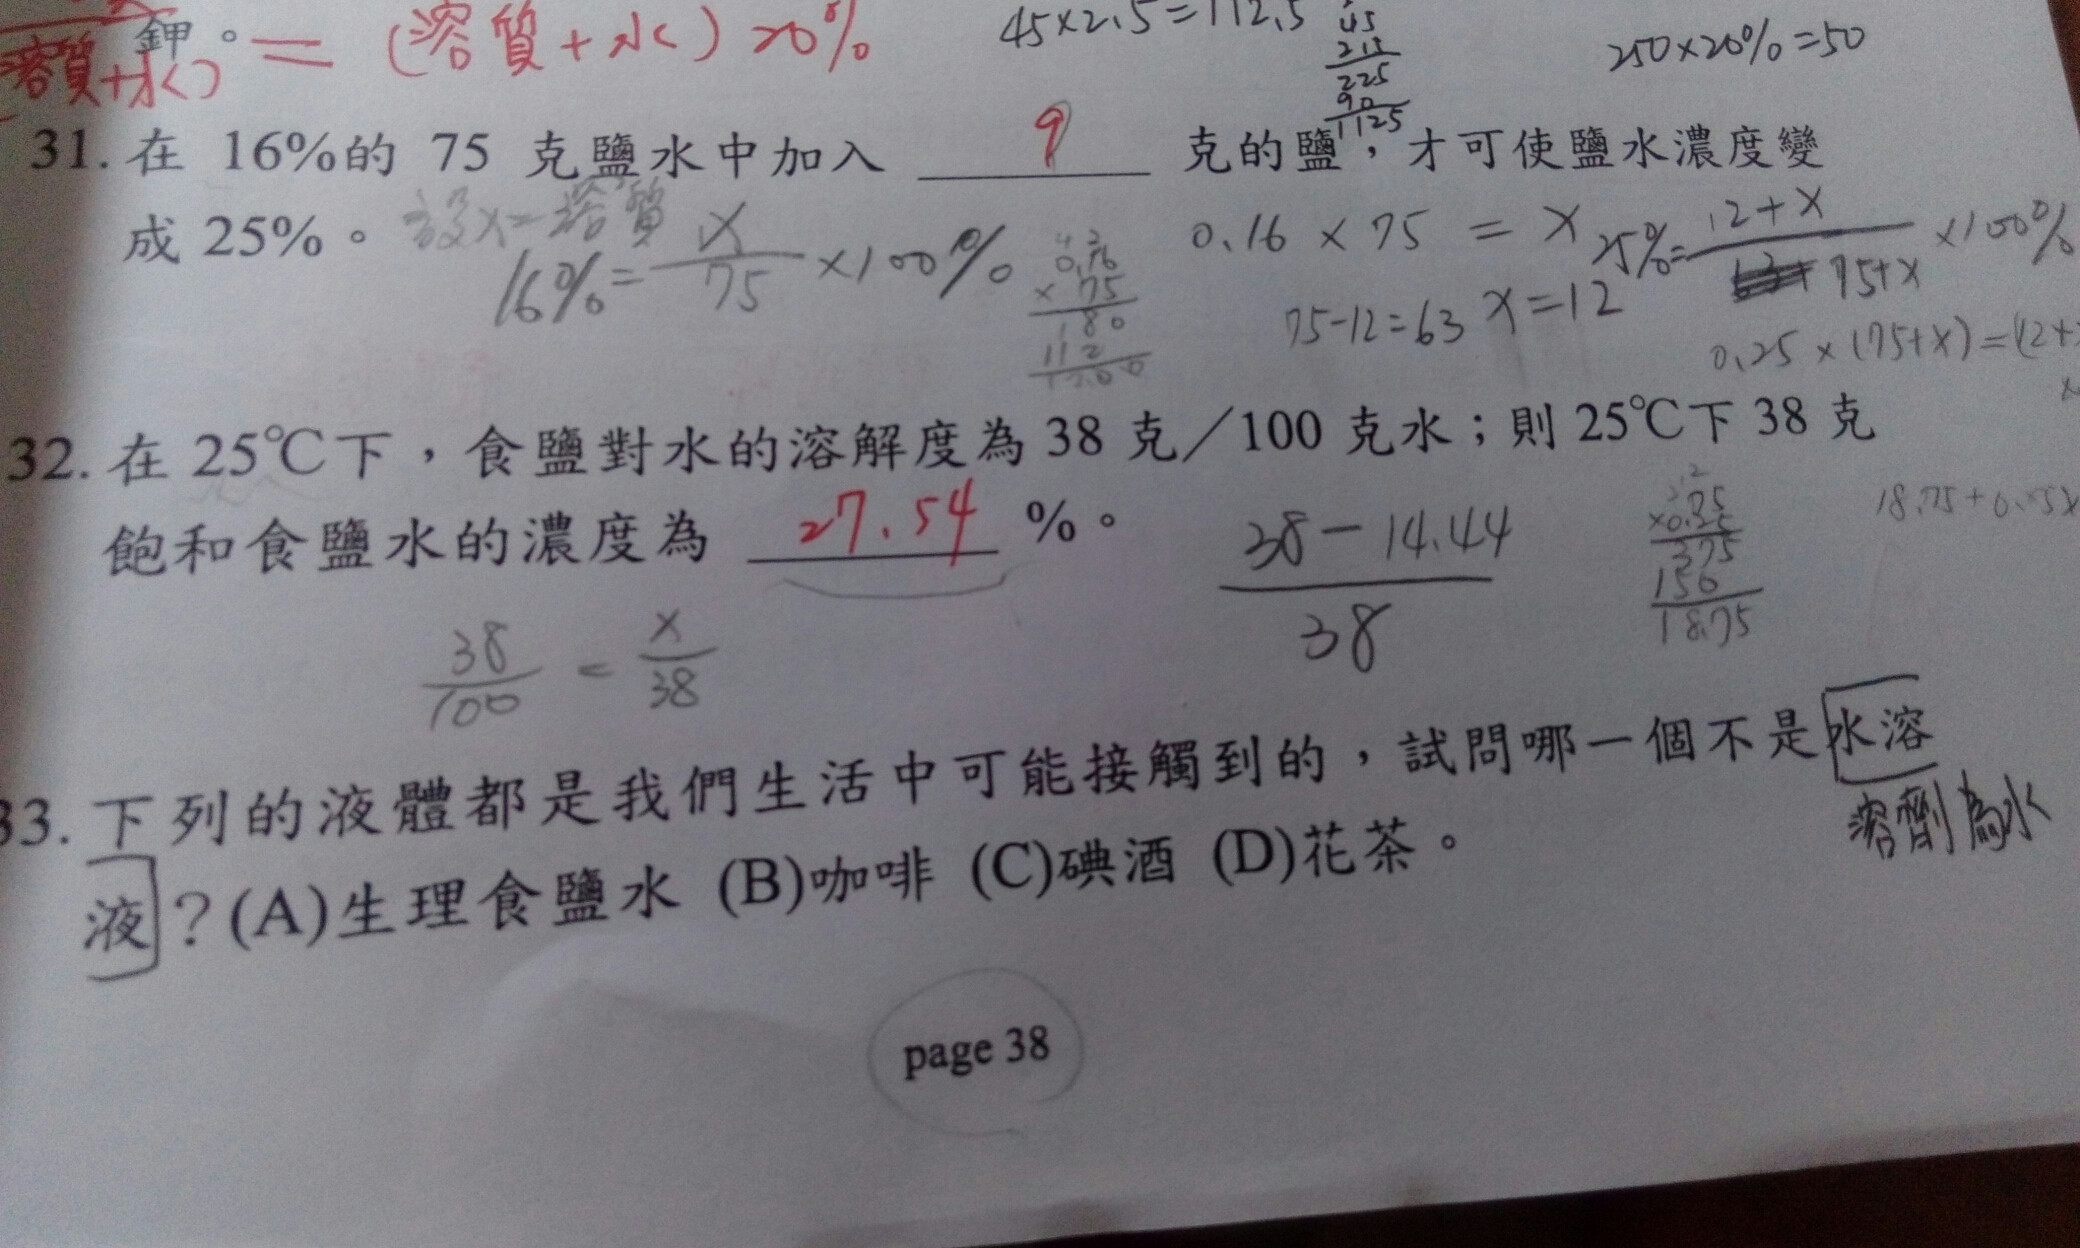 鉀。= (溶質+水) 20%
溶質+水)
45×2.5=112.5
45
2.5
225
90
1125
250×20%=50
31. 在 16%的 75 克鹽水中加入 9 克的鹽,才可使鹽水濃度變
成 25%。
設X=溶質
16%= X/75 ×100%
0.16
×75
180
112
12.00
0.16 × 75 = X
75-12=63 X=12
25%= 12+X / 75+X ×100%
0.25×(75+X)=(12+
32. 在 25℃下,食鹽對水的溶解度為 38 克/100 克水;則 25℃下 38 克
飽和食鹽水的濃度為 27.54 %。
38/100 = X/38
38-14.44
38
.75
×0.25
375
150
18.75
18.75+0.25X
33. 下列的液體都是我們生活中可能接觸到的,試問哪一個不是水溶
溶劑為水
液?(A)生理食鹽水 (B)咖啡 (C)碘酒 (D)花茶。
page 38